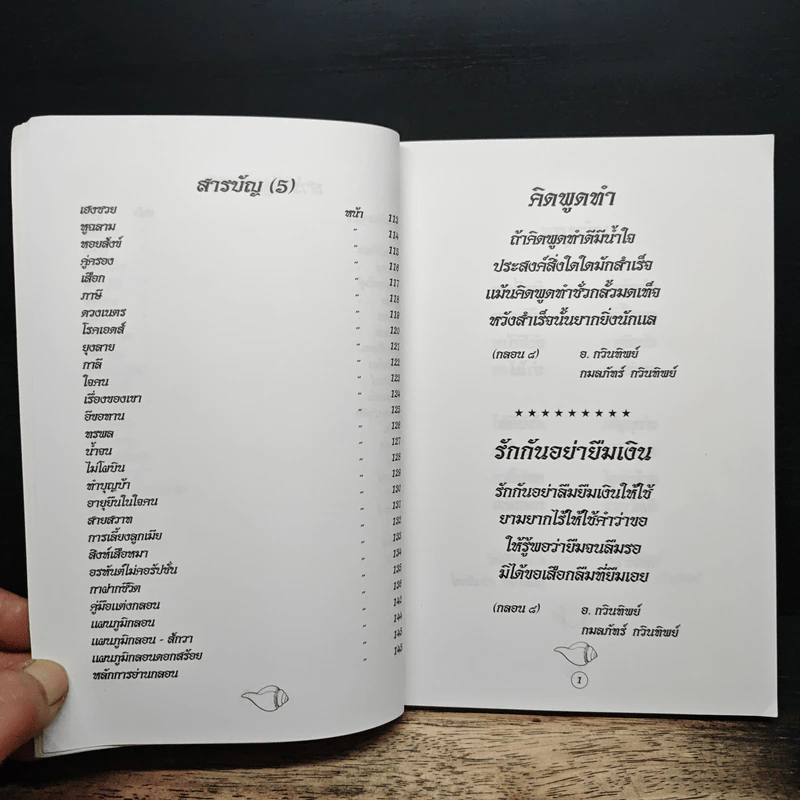 สารบัญ (5)
เฮงซวย หน้า 113
หูฉลาม " 114
หอยสังข์ " 115
คู่ครอง " 116
เสือก " 117
ภาษี " 118
ดวงเนตร " 119
โรคเอดส์ " 120
ยุงลาย " 121
กาลี " 122
ใจคน " 123
เรื่องของเขา " 124
อีขอทาน " 125
ทรพล " 126
น้ำจน " 127
ไม่โผบิน " 128
ทำบุญบ้า " 129
อายุยืนในใจคน " 130
สายสวาท " 131
การเลี้ยงลูกเมีย " 132
สิงห์เสือหมา " 133
อรหันต์ไม่คอรัปชั่น " 134
กาฝากชีวิต " 135
คู่มือแต่งกลอน " 136
แผนภูมิกลอน "
แผนภูมิกลอน - สักวา " 144
แผนภูมิกลอนดอกสร้อย " 145
หลักการอ่านกลอน "
คิดพูดทำ
ถ้าคิดพูดทำดีมีน้ำใจ
ประสงค์สิ่งใดใดมักสำเร็จ
แม้นคิดพูดทำชั่วกลั้วมดเท็จ
หวังสำเร็จนั้นยากยิ่งนักแล
(กลอน ๘) อ. กวินทิพย์
กมลภัทร์ กวินทิพย์
★★★★★★★★★
รักกันอย่ายืมเงิน
รักกันอย่าลืมยืมเงินให้ใช้
ยามยากไร้ให้ใช้คำว่าขอ
ให้รู้พอว่ายืมจนลืมรอ
มิได้ขอเสือกลืมที่ยืมเอย
(กลอน ๘) อ. กวินทิพย์
กมลภัทร์ กวินทิพย์
1